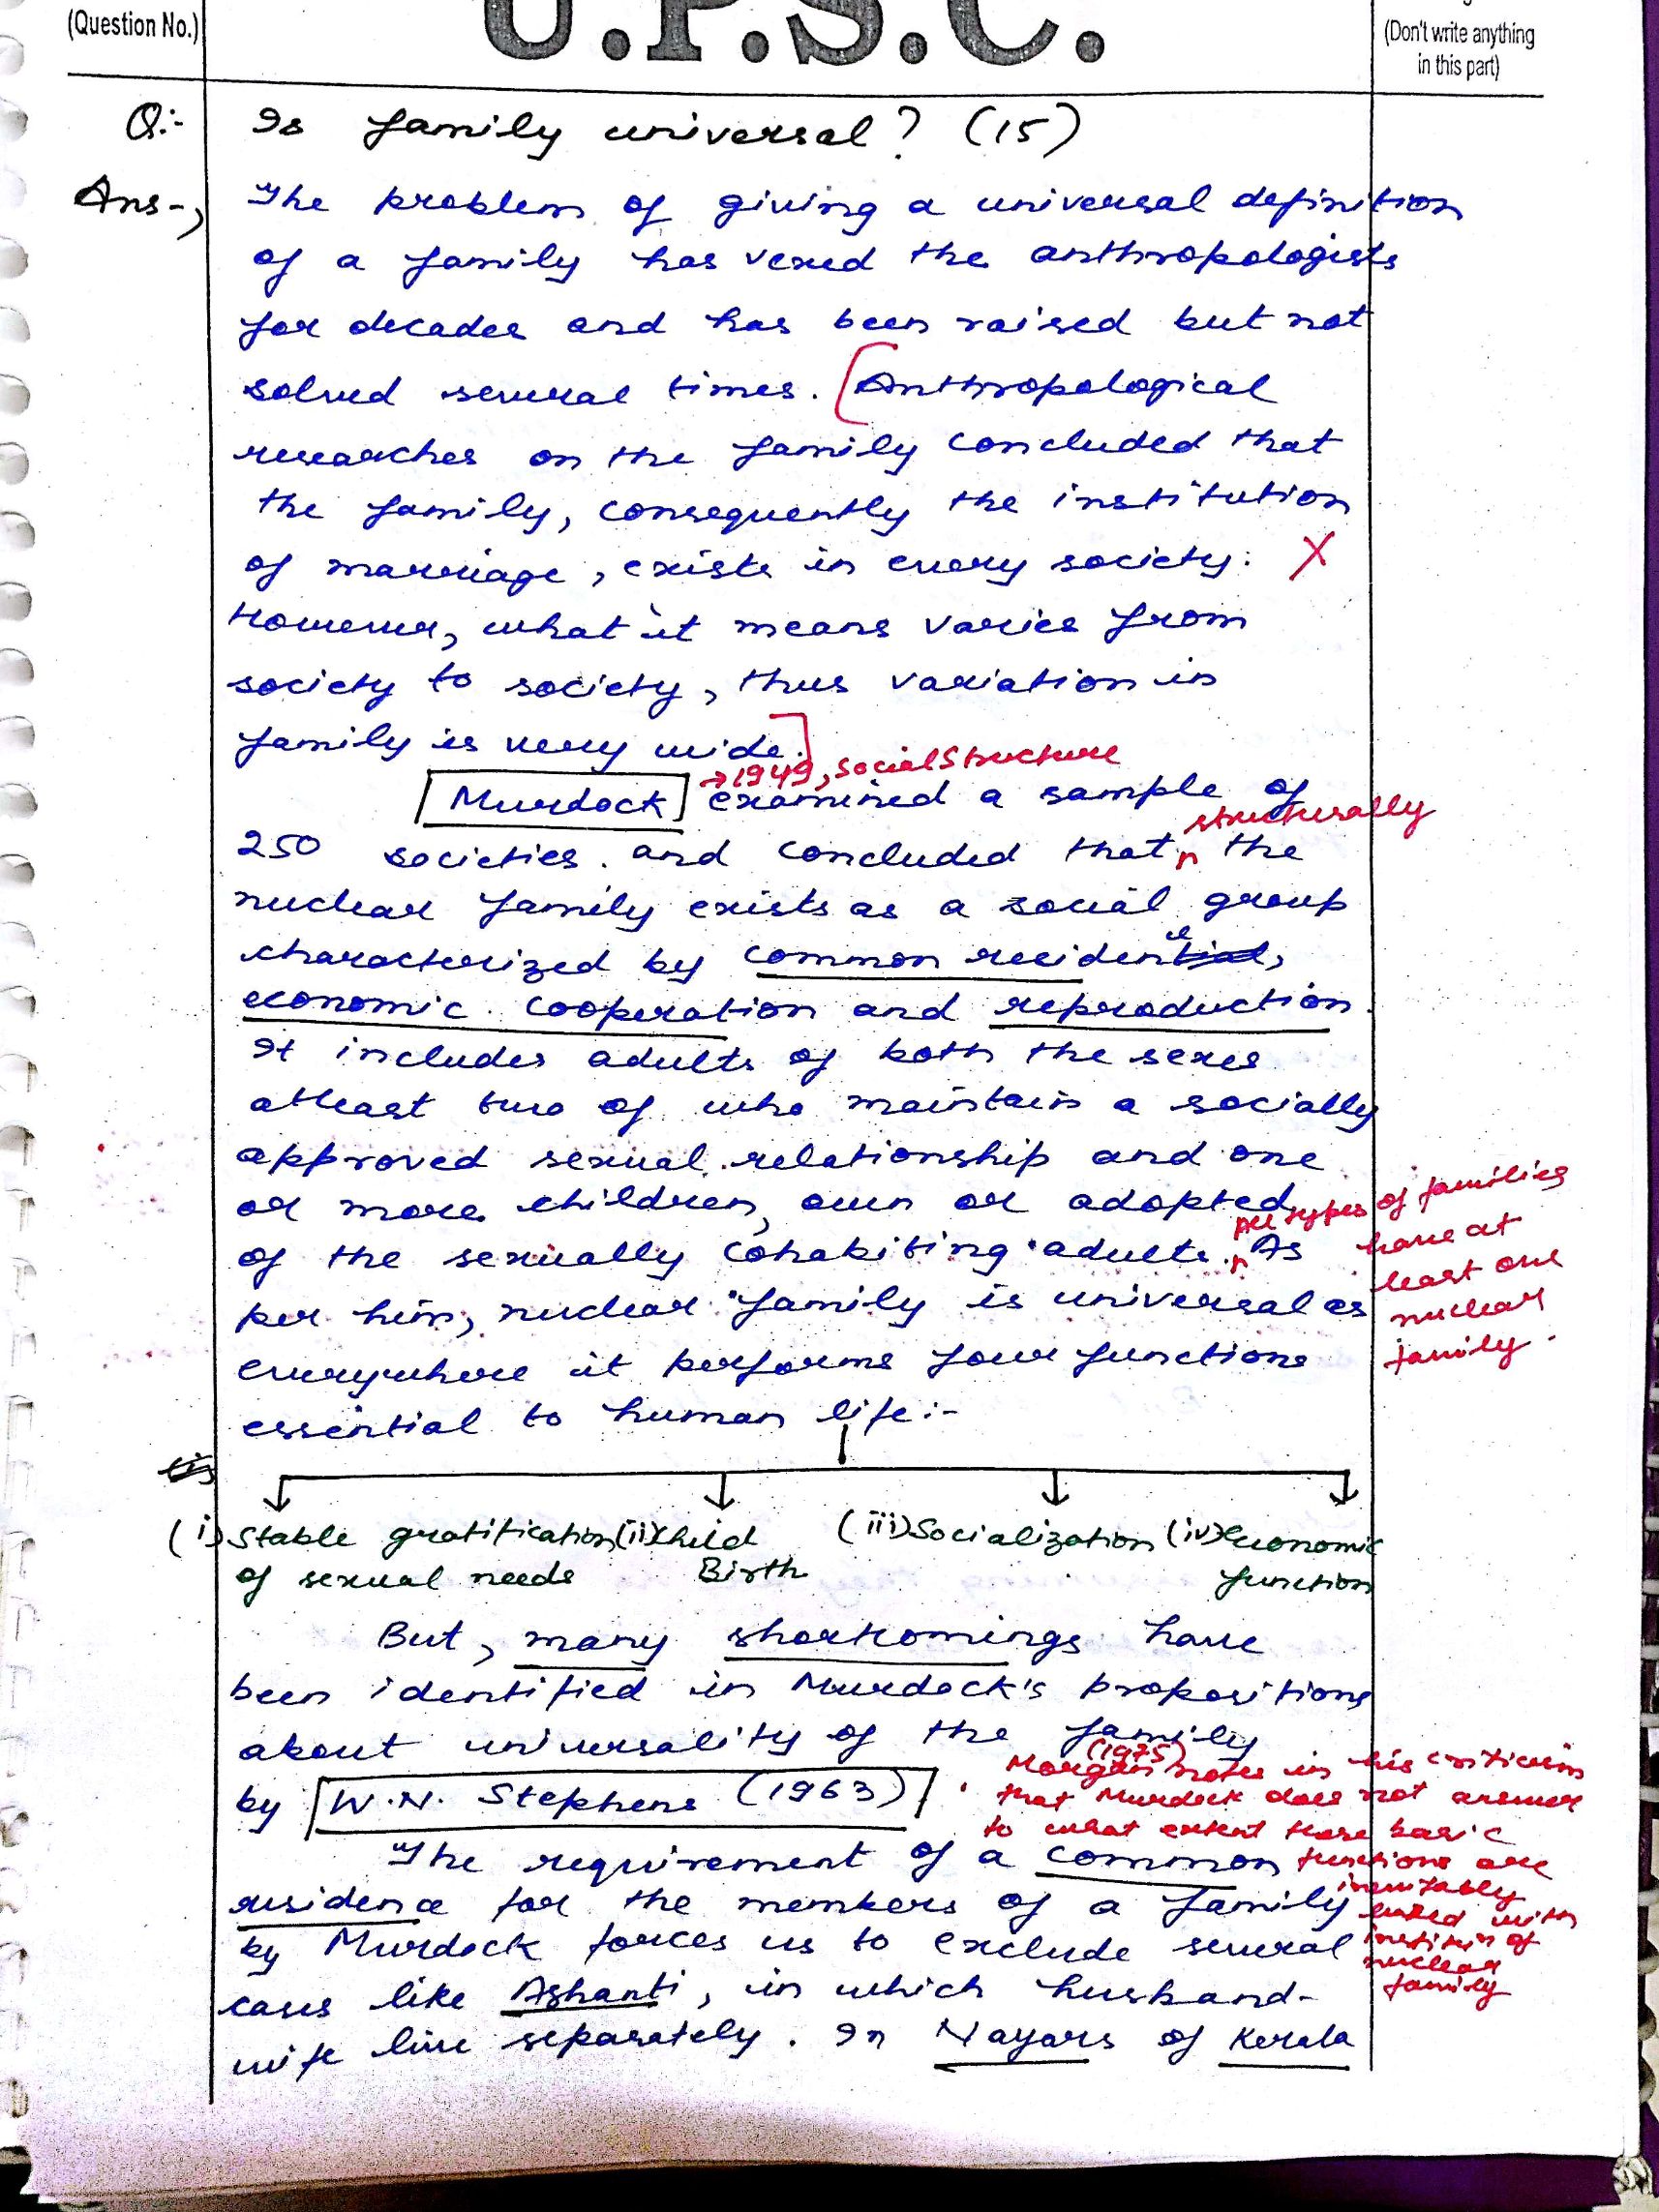 (Question No.)
U.P.S.C.
(Don't write anything
in this part)
Q:- Is family universal? (15)
Ans-, The problem of giving a universal definition
of a family has vexed the anthropologists
for decades and has been raised but not
solved several times. [Anthropological
researches on the family concluded that
the family, consequently the institution
of marriage, exists in every society. X
However, what it means varies from
society to society, thus variation in
family is very wide.]
→1949, Social Structure
Murdock examined a sample of
structurally
250 societies and concluded that, the
nuclear family exists as a social group
characterized by common residence,
economic cooperation and reproduction.
It includes adults of both the sexes
atleast two of who maintain a socially
approved sexual relationship and one
or more children, own or adopted
of the sexually cohabiting adults. As
All types of families
have at
least one
nuclear
family.
per him, nuclear family is universal as
everywhere it performs four functions
essential to human life:-
(i) Stable gratification of sexual needs
(ii) Child Birth
(iii) Socialization
(iv) Economic function
But, many shortcomings have
been identified in Murdock's propositions
about universality of the family
by W.N. Stephens (1963).
Morgan (1975) notes in his criticism
that Murdock does not answer
to what extent these basic
functions are
inevitably
linked with
instit'n of
nuclear
family
The requirement of a common
residence for the members of a family
by Murdock forces us to exclude several
cases like Ashanti, in which husband-
wife live separately. In Nayars of Kerala